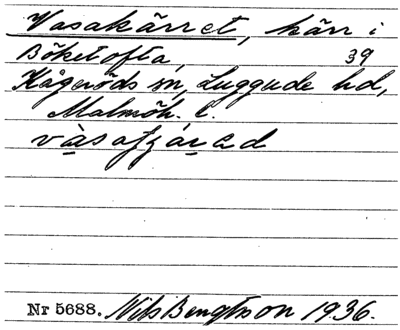 Vasakärret, kärr i
Böketofta, 39
Kågeröds sn, Luggude hd,
Malmöh. l.
Nr 5688. Nils Bengtsson 1936.